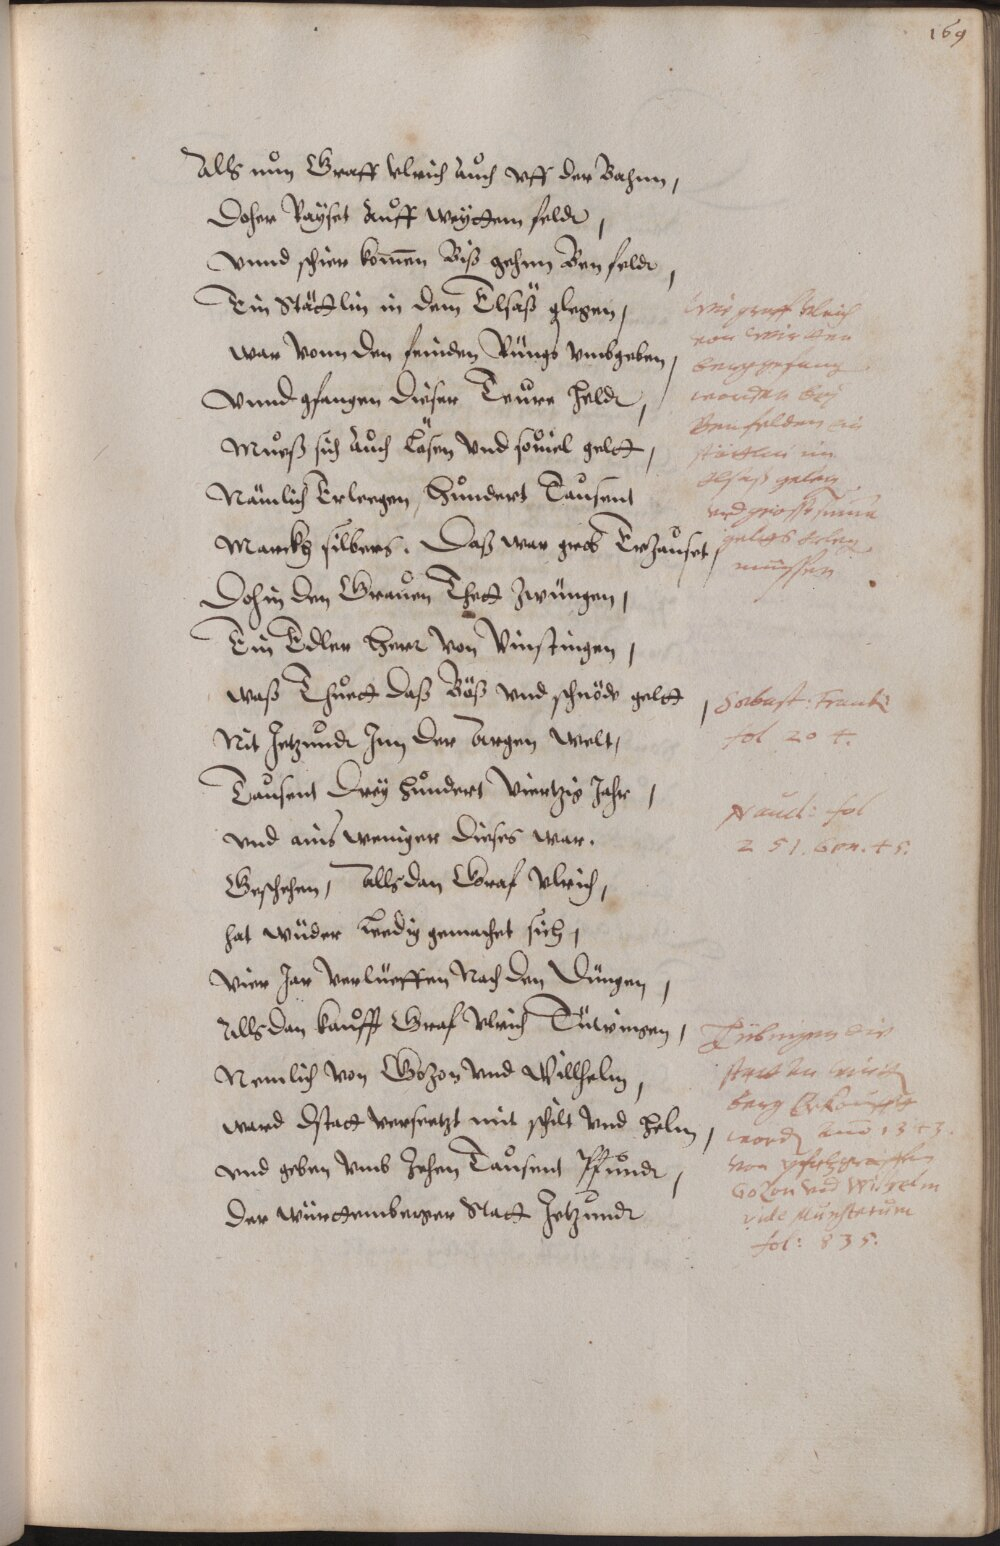 169
Alls nun Graff Vlrich Auch vff der Bahnn,
Doher Rayset Auff weyttem feldt,
Vnnd schier kommen Biß gehnn Benfeldt,
Ein Stättlin in dem Elsaß glegen,
War Vonn den feinden Rüngs vmbgeben,
Vnnd gfangen dieser Teure heldt,
Mueß sich Auch Lösen vnd souiel gelt,
Nämlich Erleegen, Hundert Tausent
Marckh silbers. Daß war grob Erzauset,
Dohin den Grauen Thett zwüngen,
Ein Edler Herr Von Vinstingen,
Waß Thuett daß Böß vnd schnöde gelt,
Nit Jetzundt Jnn der Argen Welt,
Tausent Drey Hundert Viertzig Jahr,
Vnd ains weniger dieses war.
Geschehen, Allsdan Graf Vlrich,
hat wüder Ledig gemachet sich,
Vier Jar Verlüeffen Nach den Dingen,
Allsdan kaufft Graf Vlrich Tüwingen,
Nemlich Von Gozon vnd Willhelm,
Ward dstatt versetzt mit schilt vnd helm,
Vnd geben vmb Zehen Tausent Pfundt,
Der Württemberger Statt Jetzundt
Wie graff Vlrich
von Wirtten
berg gefang
worden bey
Benfelden ein
stättlin im
Elsaß gelen
vnd grosse summ
gelts erleg
müssen
Sebast: Franck
fol 204.
Naucl: fol
251. Gen. 45.
Tübingen die
statt an wirtt
berg Erkaufft
word Anno 1343.
Von pfaltzgraffen
Gozon vnd Wilhelm
vide Munsterum
fol: 835.